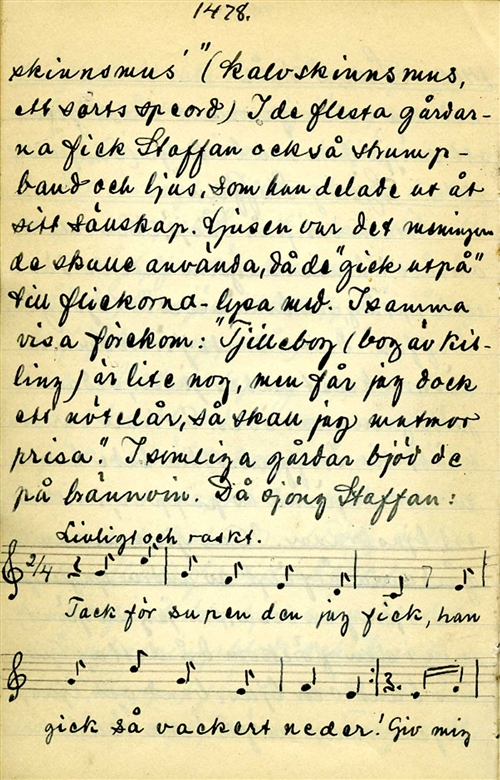 1478.
skinnsmus" (kalvskinnsmus,
ett sorts speord) I de flesta gårdar-
na fick Staffan också strump-
band och ljus, som han delade ut åt
sitt sånskap. Ljusen var det meningen
de skulle använda, då de "gick utpå"
till flickorna - lysa med. I samma
visa förekom: "Tjilleborg (bog av kil-
ling) är lite nog, men får jag dock
ett nötelår, så skall jag matmor
prisa." I somliga gårdar bjöd de
på brännvin. Då sjöng Staffan:
Livligt och raskt.
2/4
Tack för supen den jag fick, han
gick så vackert neder! Giv mig